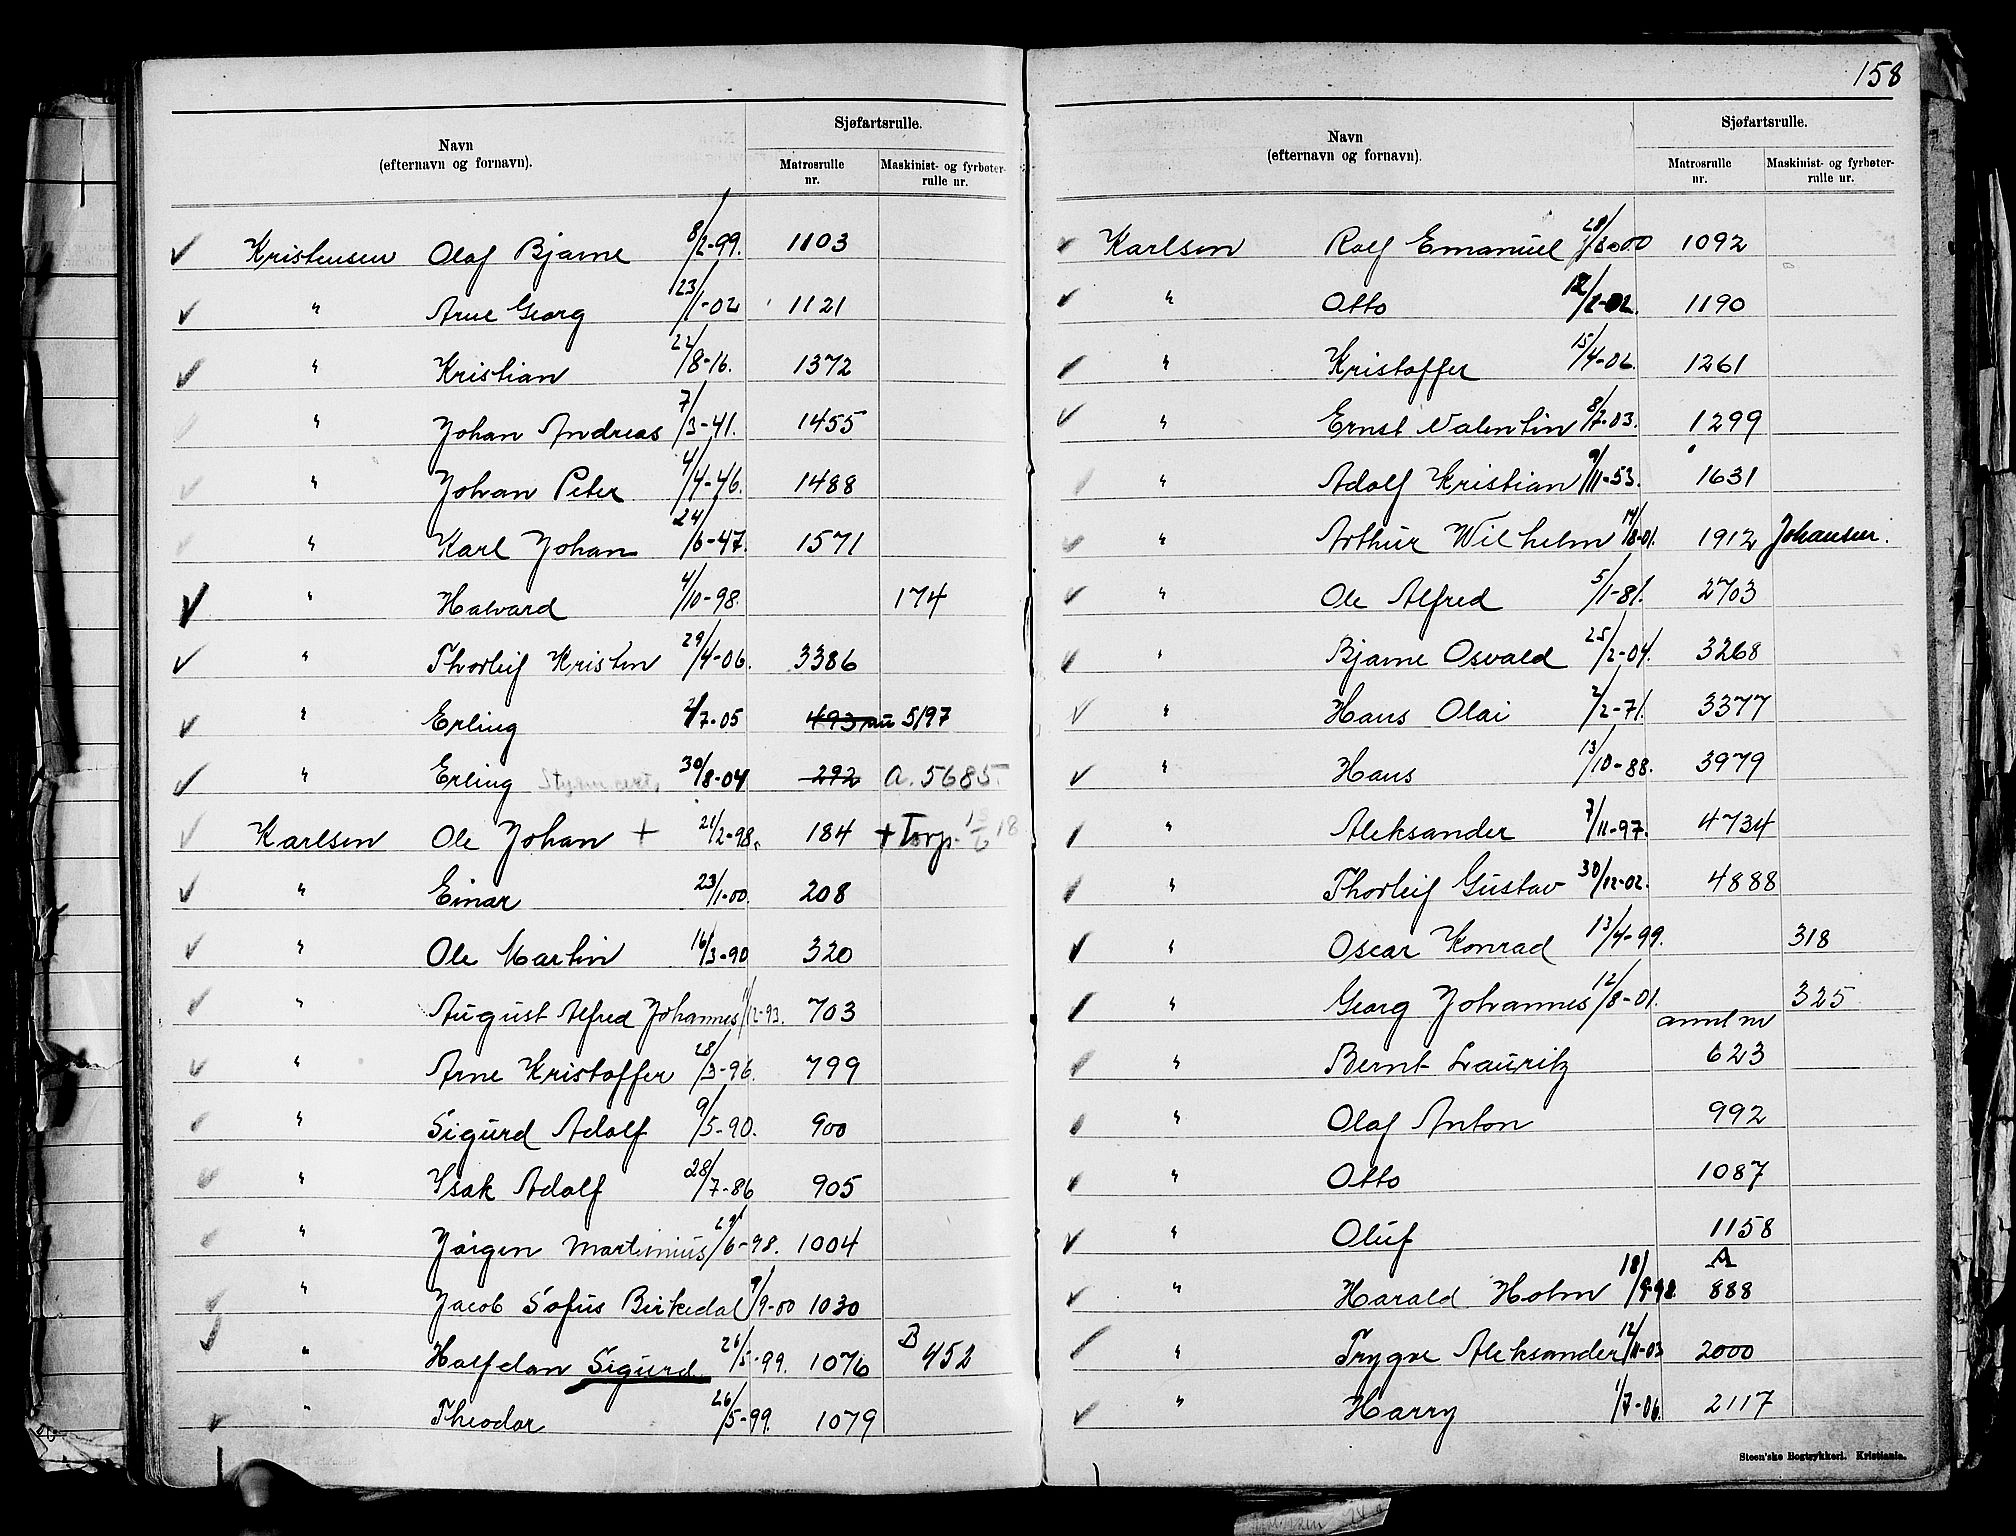 158
Navn
(efternavn og fornavn).
Sjøfartsrulle.
Matrosrulle nr.
Maskinist- og fyrbøter-rulle nr.
Kristensen Olaf Bjarne 8/2-99. 1103
" Arne Georg 23/1-02 1121
" Kristian 22/8-16. 1372
" Johan Andreas 7/3-41. 1455
" Johan Peter 4/4-46. 1488
" Karl Johan 24/6-47. 1571
" Halvard 4/10-98. 174
" Thorleif Kristen 29/4-06. 3386
" Erling 2/7-05 493 5197
" Erling 30/8-04 292 a. 5685.
Karlsen Ole Johan + 21/2-98. 184 + Torp. 13/6 18
" Einar 23/1-00. 208
" Ole Martin 16/3-90 320
" August Alfred Johannes 1/2-93. 703
" Arne Kristoffer 28/3-96. 799
" Sigurd Adolf 9/5-90. 900
" Isak Adolf 28/7-86 905
" Jørgen Martinius 29/6-98. 1004
" Jacob Sofus Birkedal 9/9-00 1030
" Halfdan Sigurd 26/5-99. 1076 B 452
" Theodor 26/5-99. 1079
Navn
(efternavn og fornavn).
Sjøfartsrulle.
Matrosrulle nr.
Maskinist- og fyrbøter-rulle nr.
Karlsen Rolf Emanuel 1092
" Otto 12/2-02. 1190
" Kristoffer 15/4-06. 1261
" Ernst Valentin 8/7-03. 1299
" Adolf Kristian 9/11-53. 1631
" Arthur Wilhelm 14/8-01. 1912 Johansen.
" Ole Alfred 5/1-81. 2703
" Bjarne Osvald 25/2-04. 3268
" Hans Olai 2/2-71. 3377
" Hans 13/10-88. 3979
" Aleksander 7/11-97. 4734
" Thorleif Gustav 30/12-02. 4888
" Oscar Konrad 13/4-99. 318
" Georg Johannes 12/8-01. 325
annt nr
" Bernt Lauritz 623
" Olaf Anton 992
" Otto 1087
" Oluf 1158
A
" Harald Holm 18/9-98 888
" Trygve Aleksander 12/11-03 2000
" Harry 1/7-06. 2117
Steen'ske Bogtrykkeri. Kristiania.